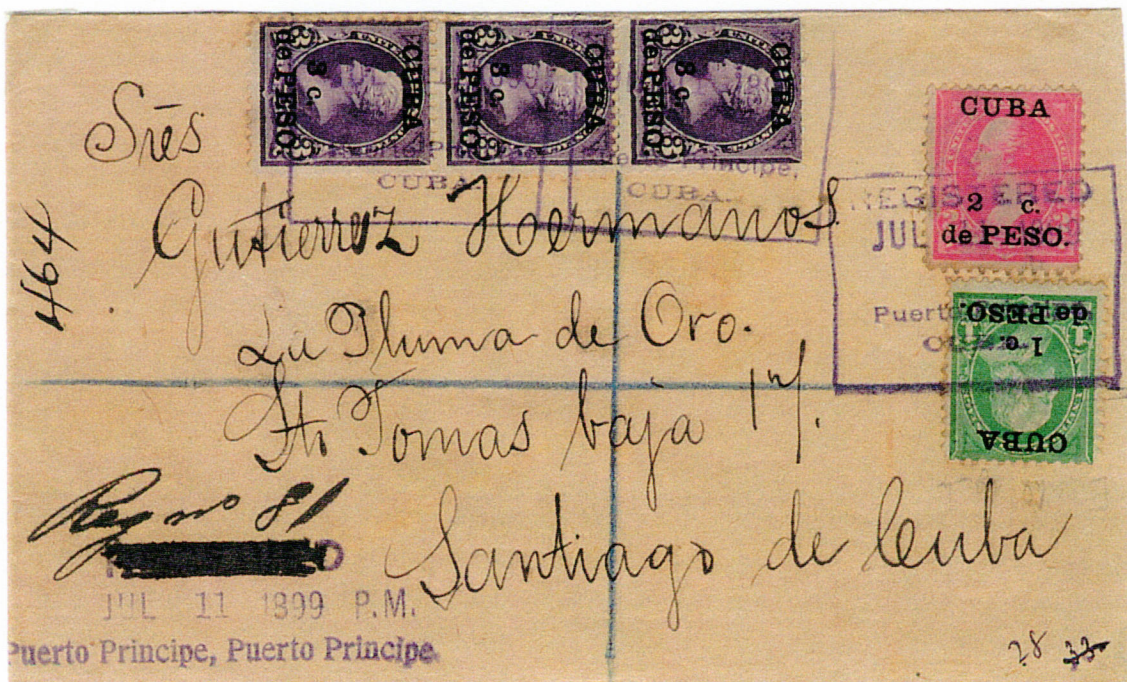 CUBA
3 c.
de PESO.
CUBA
3 c.
de PESO.
CUBA
3 c.
de PESO.
CUBA
2 c.
de PESO.
CUBA
1 c.
de PESO.
CUBA
CUBA.
REGISTERED
JUL
Puerto
Principe,
Srēs
Gutierrez Hermanos.
La Pluma de Oro.
Sto Tomas baja 17.
Santiago de Cuba
464
Reg no 81
JUL 11 1899 P.M.
Puerto Principe, Puerto Principe.
28 33